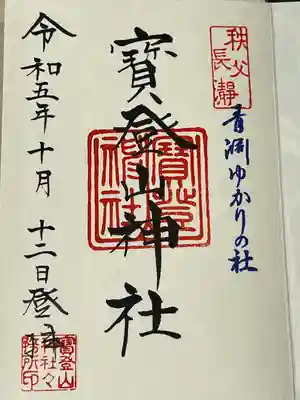 秩父
長瀞
青淵ゆかりの社
寳登山神社
寳登山
神社
令和五年十月十二日登拝
寳登山
神社々
務所印